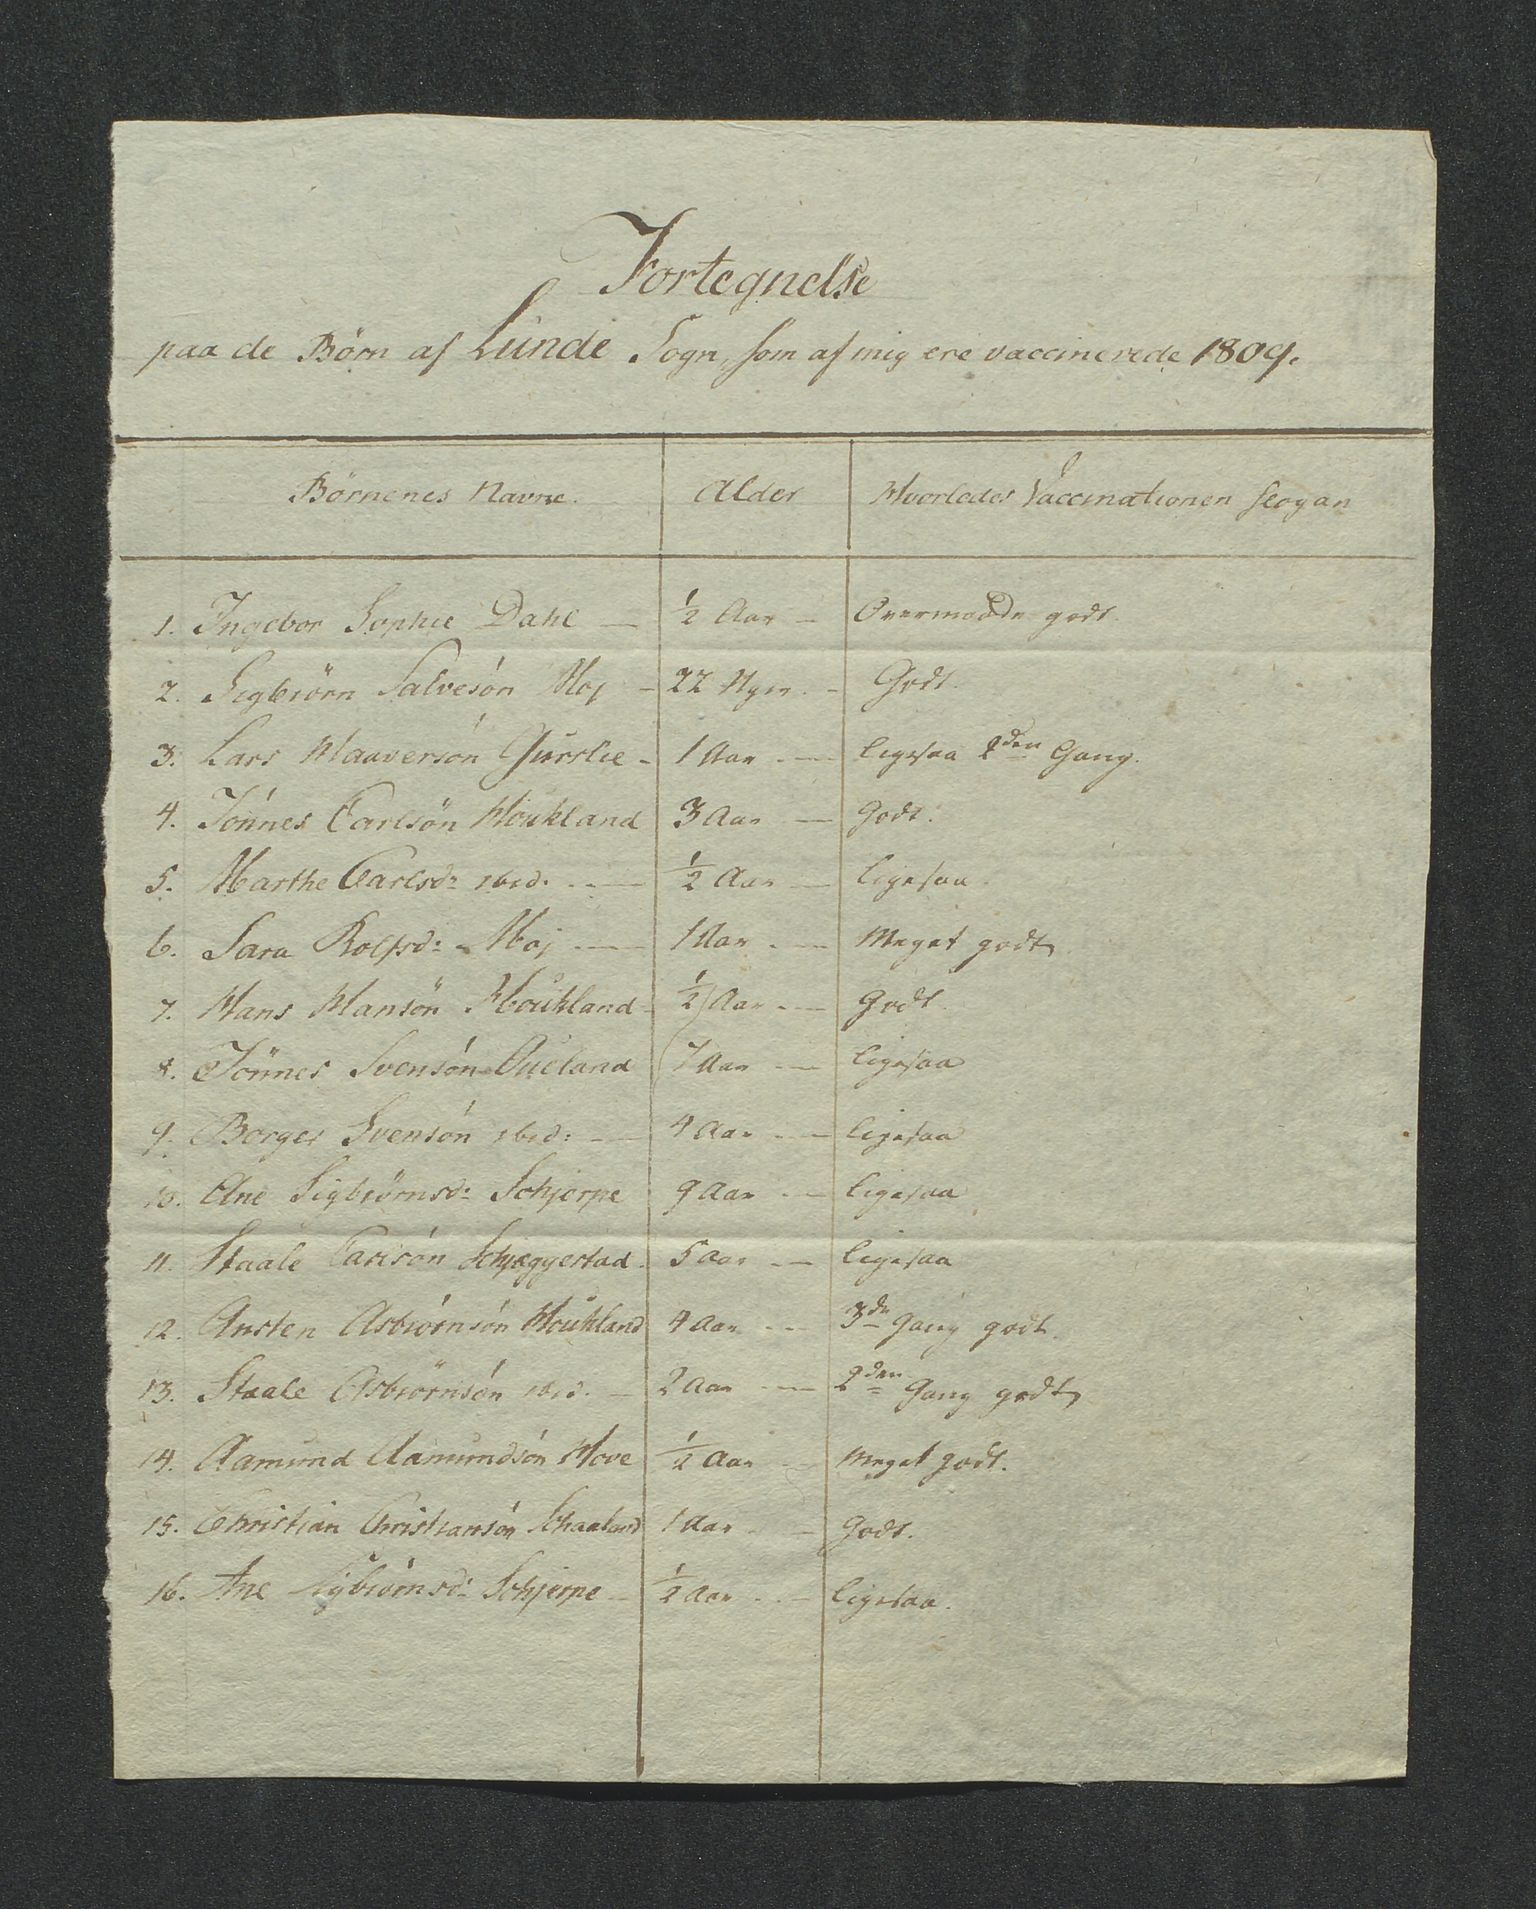 Fortegnelse
paa de Börn af Lunde Sogn, som af mig ere vaccinerede 1809.
Börnenes Navne. Alder Hvorledes Vaccinationen slog an
1. Ingebor Sophie Dahl — ½ Aar — Overmaade godt.
2. Sigbiörn Salvesön Moj — 22 Uger. - Godt.
3. Lars Haaversön Gurslie - 1 Aar — ligesaa 2den Gang.
4. Tönnes Carlsön Houkland 3 Aar — Godt.
5. Marthe Carlsd: ibid: — ½ Aar — ligesaa.
6. Sara Rolfsd: Moj — 1 Aar — Meget godt
7. Hans Hansön Houkland - ½ Aar — Godt.
8. Tönnes Svensön Oueland 7 Aar — ligesaa
9. Börges Svensön ibid: — 4 Aar — ligesaa
10. Ane Sigbiörnsd: Schjerpe 9 Aar — ligesaa
11. Staale Carlsön Schjeggestad. 5 Aar — ligesaa
12. Ansten Asbiörnsön Houkland 4 Aar - - 3de Gang godt.
13. Staale Asbiörnsön ibid. — 2 Aar — 2den Gang godt
14. Aamund Aamundsön Hove ½ Aar — Meget godt.
15. Christian Christiansön Schaaland 1 Aar - - Godt.
16. Ane Sigbiörnsd: Schjerpe — ½ Aar - - ligesaa.